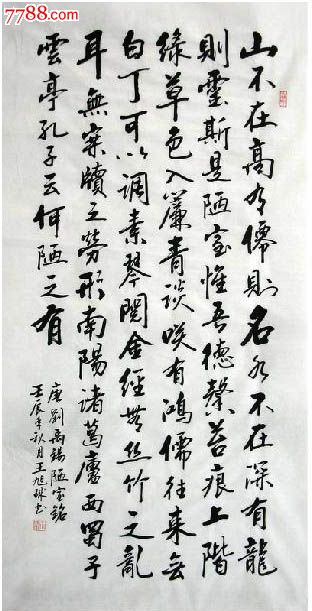 7788.com
山不在高有僊則名水不在深有龍
則靈斯是陋室惟吾德馨苔痕上階
綠草色入簾青談咲有鴻儒往來無
白丁可以调素琴閱金經無丝竹之亂
耳無案牘之勞形南陽諸葛廬西蜀子
雲亭孔子云何陋之有
唐劉禹錫陋室銘
壬辰年秋月王旭